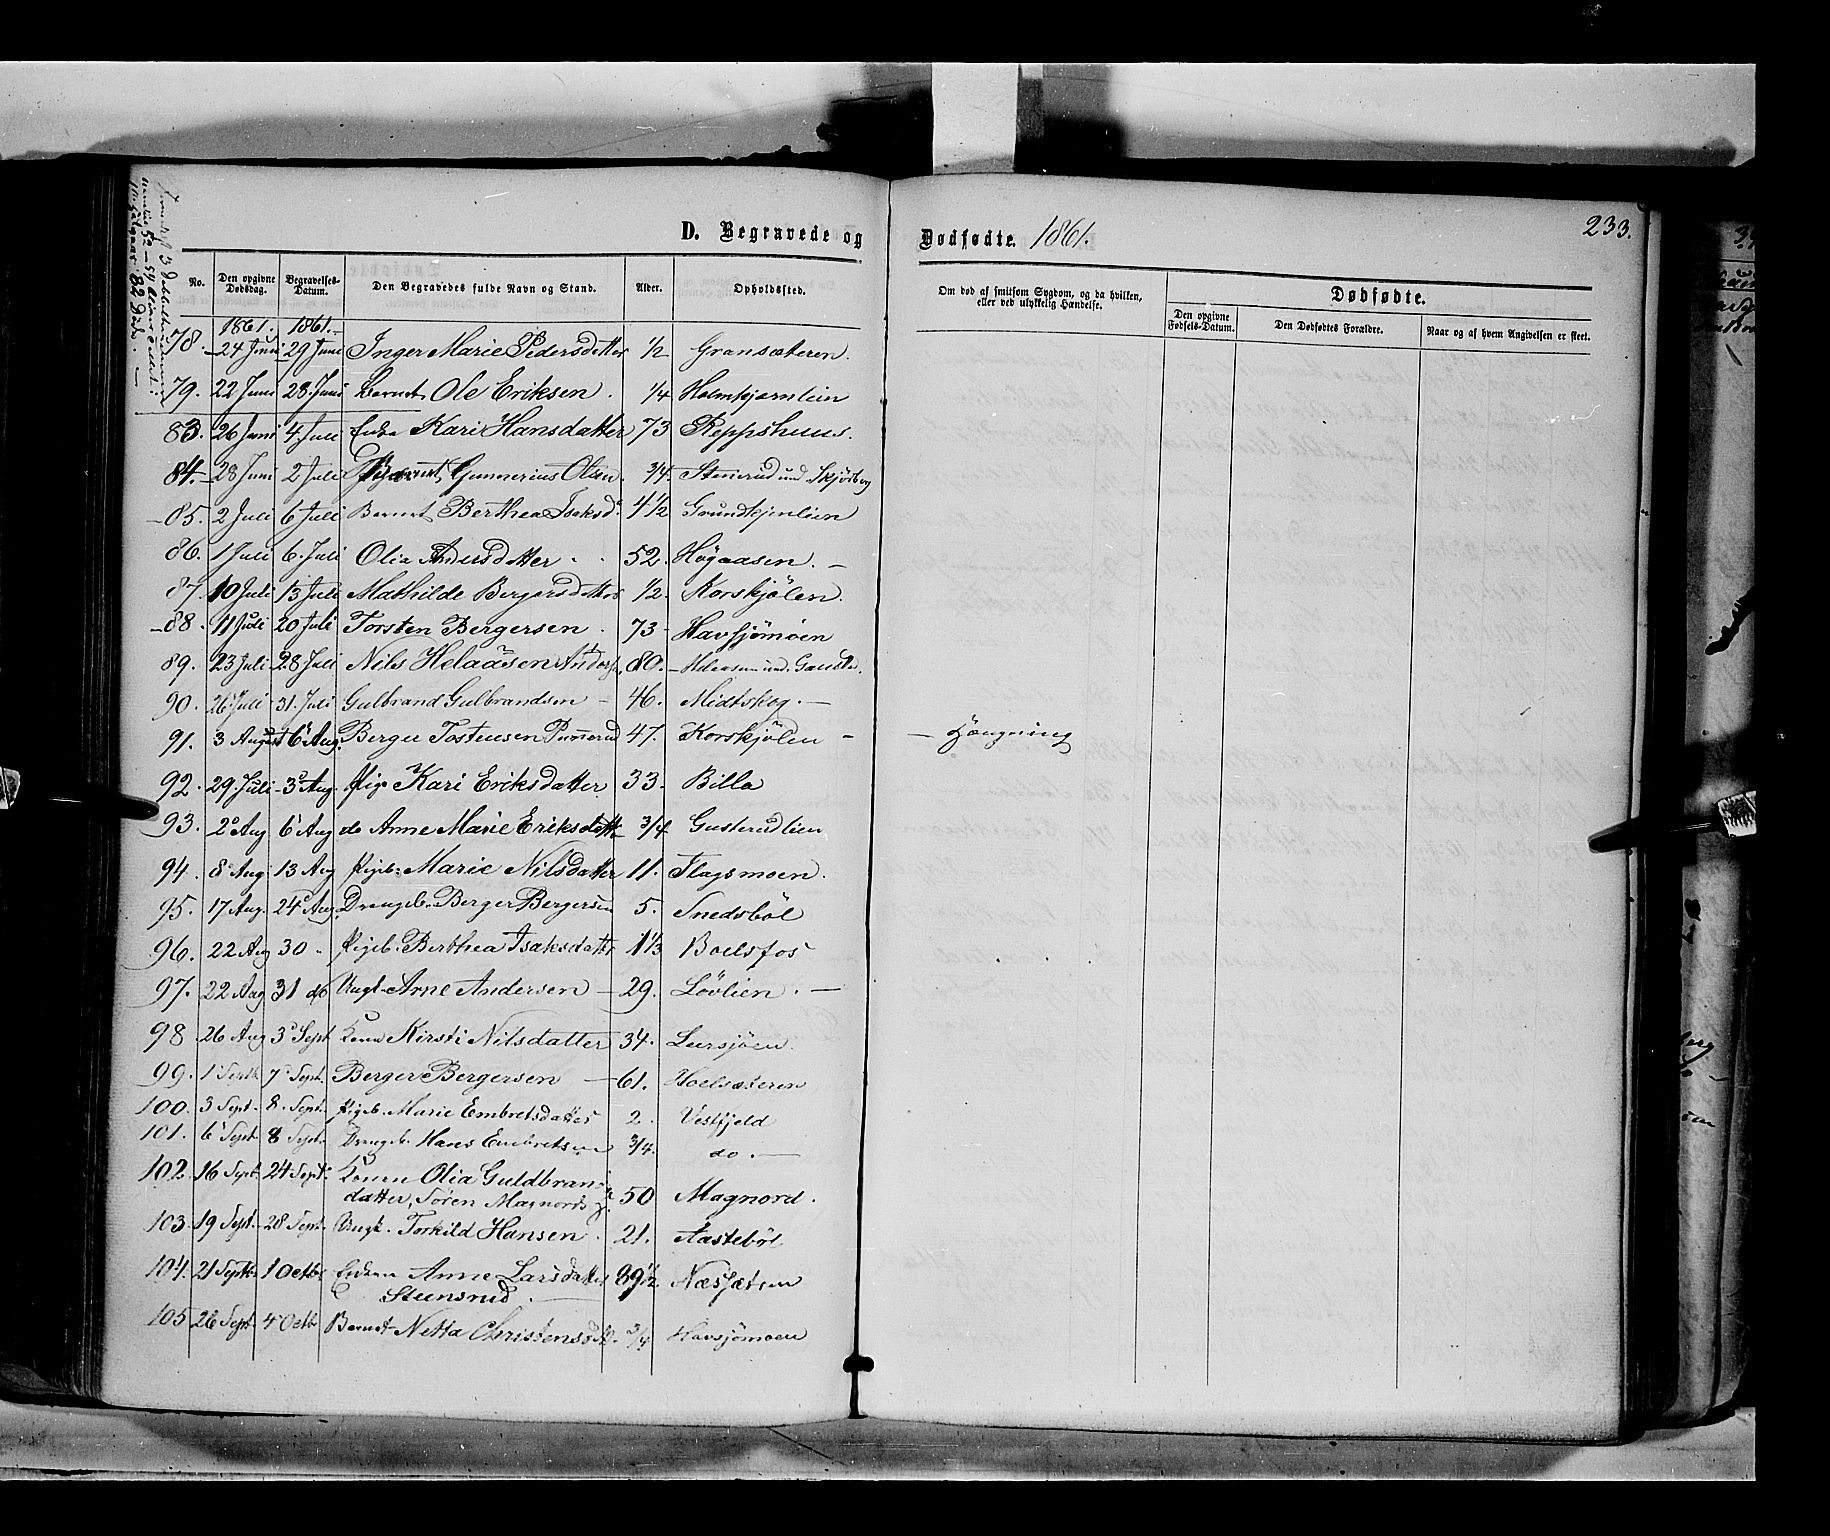 D. Begravede og Dødfødte. 1861.
233.
No. Den opgivne Dødsdag. Begravelses-Datum. Den Begravedes fulde Navn og Stand. Alder. Opholdssted. Om død af smitsom Sygdom, og da hvilken, eller ved ulykkelig Hændelse. Dødfødte. Den opgivne Fødsels-Datum. Den Dødfødtes Forældre. Naar og af hvem Angivelsen er skeet.
1861. 1861.
78. 24 Juni 29 Juni Inger Marie Pedersdatter 1/2 Gransæteren.
79. 22 Juni 28 Juni Barnet Ole Eriksen. 1/4 Holmtjernlien
83. 26 Juni 4 Juli Enke Kari Hansdatter 73 Reppshuus.
84. 28 Juni 2 Juli Barnet Gunnerius Olsen. 3/4. Stenerud und Skjørberg
85. 2 Juli 6 Juli Barnet Berthea Isaksd. 4 1/2 Grundtjenlien
86. 1 Juli 6. Juli Olia Andersdatter. 52. Høgaasen.
87. 10 Juli 13 Juli Mathilde Bergersdatter 1/2. Korskjølen.
88. 11 Juli 20 Juli Torsten Bergersen. 73 Havsjømoen
89. 23 Juli 28 Juli Nils Helaasen 80.
90. 26 Juli 31. Juli Gulbrand Gulbrandsen 46. Midtskog.
91. 3 August 6 Aug. Berger Tostensen 47. Korskjølen - Hængning
92. 29. Juli 3 Aug. Pige Kari Eriksdatter 33. Billa
93. 2 Aug 6 Aug do Anne Marie Eriksdatt 3/4 Gusterudlien
94. 8 Aug 13 Aug Pigeb: Marie Nilsdatter 11. Flagsmoen.
95. 17 Aug. 24 Aug. Drengeb. Berger Bergersen 5. Snedsböl
96. 22 Aug 30 Pigeb. Berthea Isaksdatter 1 1/3 Boelsfos
97. 22 Aug 31 do Ungk Arne Andersen 29. Lövlien.
98 26 Aug 3 Sept Kone Kirsti Nilsdatter 34. Leersjöen.
99. 1 Septb 7 Sept. Berger Bergersen 61. Hoelsæteren
100. 3 Sept. 8. Sept. Pigeb. Marie Embretsdatter 2. Vestfjeld
101. 6 Sept. 8 Sept. Drengeb. Hans Embretsen 3/4. do.
102. 16 Sept. 24 Sept. Konen Olia Guldbrans
datter, Sören Magnords 50 Magnord.
103. 19 Sept. 28 Sept. Ungk. Torkild Hansen. 21. Aasteböl
104. 21 Septb. 1 Octbr Enken Anne Larsdatter 89 1/2. Næssætren
Steensrud.
105 26 Sept. 4 Octb Barnet Netta Christensd. 3/4 Havsjømoen